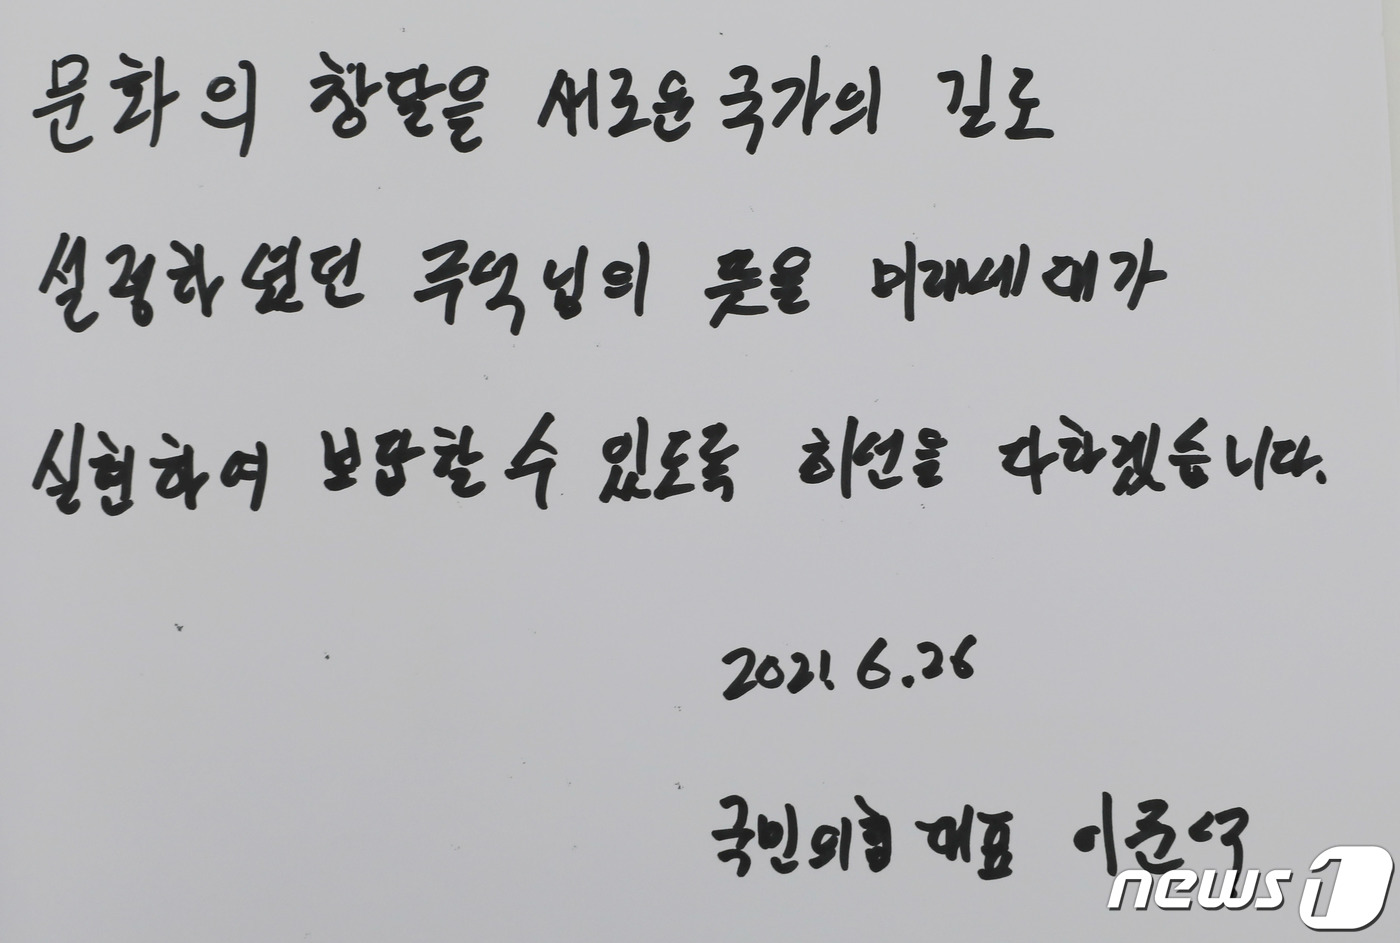 문화의 창달을 새로운 국가의 길로
설정하셨던 주석님의 뜻을 미래세대가
실현하여 보답할 수 있도록 최선을 다하겠습니다.
2021. 6. 26
국민의힘 대표 이준석
news1